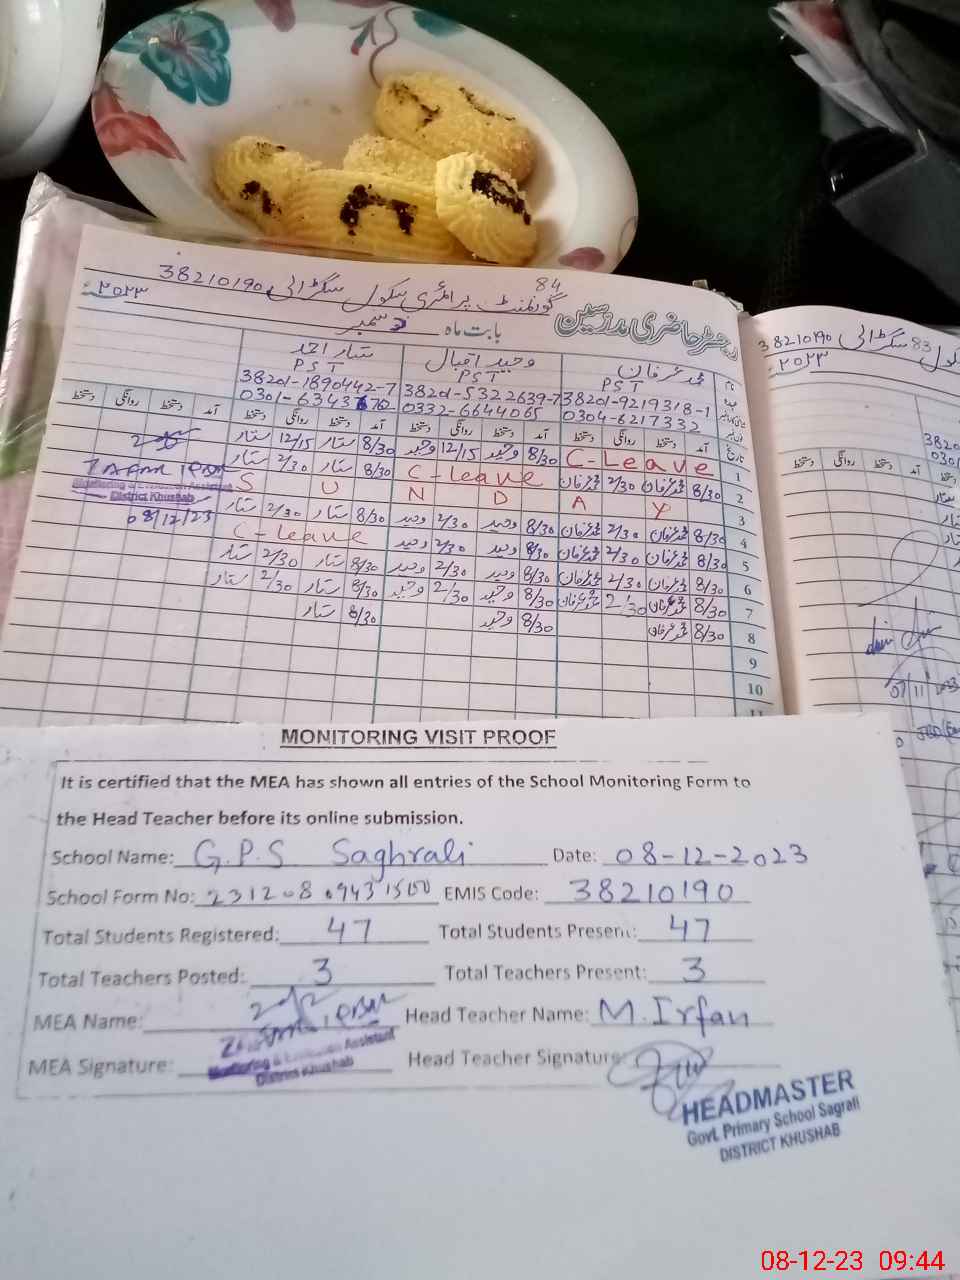 84
گورنمنٹ پرائمری سکول سگرالی 38210190
رجسٹر حاضری مدرسین
بابت ماہ دسمبر ۲۰۲۳
محمد عرفان وحید اقبال ستار احمد
PST PST PST
38201-9219318-1 38201-5322639-7 38201-1890442-7
0304-6217332 0332-6644065 0301-6343
آمد دستخط روانگی دستخط آمد دستخط روانگی دستخط آمد دستخط روانگی دستخط آمد دستخط روانگی دستخط
1 C-Leave 8/30 وحید 12/15 وحید 8/30 ستار 12/15 ستار
2 8/30 محمد عرفان 2/30 محمد عرفان C-leave 8/30 ستار 2/30 ستار
3 S U N D A Y
4 8/30 محمد عرفان 2/30 محمد عرفان 8/30 وحید 2/30 وحید 8/30 ستار 2/30 ستار
5 8/30 محمد عرفان 2/30 محمد عرفان 8/30 وحید 2/30 وحید C-leave
6 8/30 محمد عرفان 2/30 محمد عرفان 8/30 وحید 2/30 وحید 8/30 ستار 2/30 ستار
7 8/30 محمد عرفان 2/30 محمد عرفان 8/30 وحید 2/30 وحید 8/30 ستار 2/30 ستار
8 8/30 محمد عرفان 8/30 وحید 8/30 ستار
9
10
11
Monitoring & Evaluation Assistant
District Khushab
08/12/23
83 سگرالی 38210190
۲۰۲۳
07/11
MONITORING VISIT PROOF
It is certified that the MEA has shown all entries of the School Monitoring Form to
the Head Teacher before its online submission.
School Name: G.P.S Saghrali Date: 08-12-2023
School Form No: 23120809431500 EMIS Code: 38210190
Total Students Registered: 47 Total Students Present: 47
Total Teachers Posted: 3 Total Teachers Present: 3
MEA Name: Head Teacher Name: M.Irfan
MEA Signature: Head Teacher Signature:
Monitoring & Evaluation Assistant
District Khushab
HEADMASTER
Govt. Primary School Sagrali
DISTRICT KHUSHAB
08-12-23 09:44